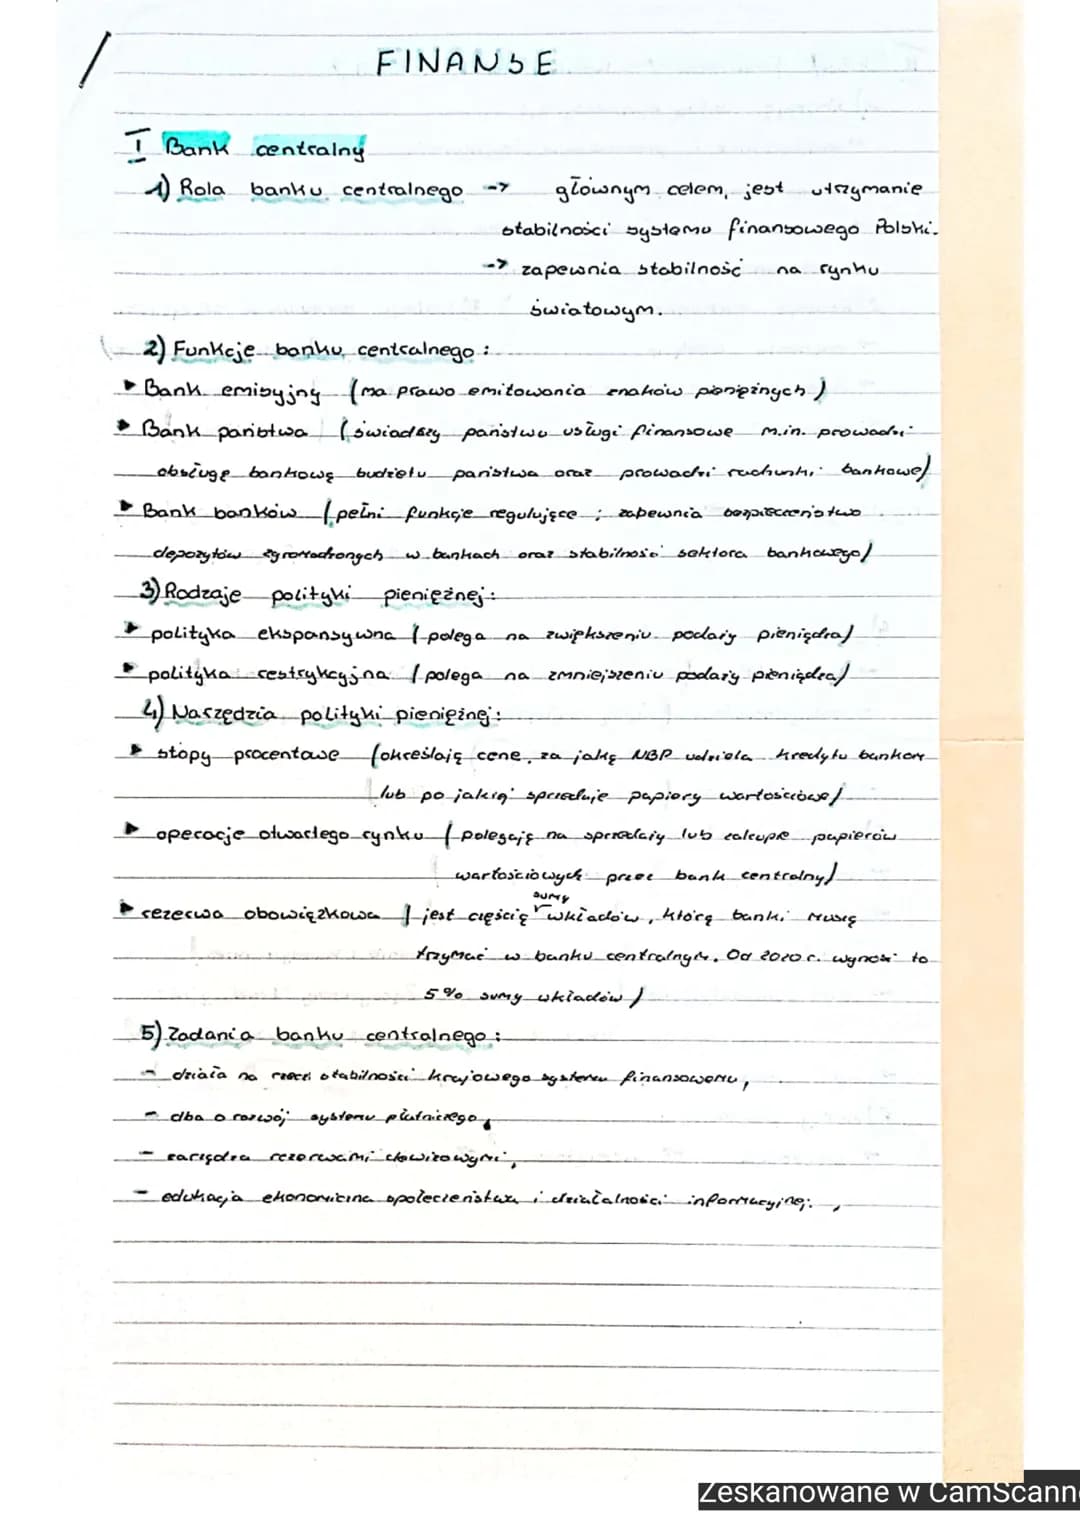 FINANSE
I Bank centralny
1) Rola banku centralnego -> głównym celem, jest utrzymanie
stabilności systemu finansowego Polski.
-> zapewnia stabilność na rynku
światowym.
2) Funkcje banku centralnego :
▸ Bank emisyjny (ma prawo emitowania znaków pieniężnych)
▸ Bank państwa (świadczy państwu usługi finansowe m.in. prowadzi
obsługę bankową budżetu państwa oraz prowadzi rachunki bankowe)
▸ Bank banków (pełni funkcje regulujące ; zapewnia bezpieczeństwo
depozytów zgromadzonych w bankach oraz stabilność sektora bankowego)
3) Rodzaje polityki pieniężnej :
▸ polityka ekspansywna (polega na zwiększeniu podaży pieniądza)
▸ polityka restrykcyjna (polega na zmniejszeniu podaży pieniądza)
4) Narzędzia polityki pieniężnej :
▸ stopy procentowe (określają cenę, za jaką NBP udziela kredytu bankom
lub po jakiej sprzedaje papiery wartościowe)
▸ operacje otwartego rynku (polegają na sprzedaży lub zakupie papierów
wartościowych przez bank centralny)
▸ rezerwa obowiązkowa (jest częścią sumy wkładów, którą banki muszą
trzymać w banku centralnym. Od 2020 r. wynosi to
5% sumy wkładów)
5) Zadania banku centralnego :
- działa na rzecz stabilności krajowego systemu finansowemu,
- dba o rozwój systemu płatniczego,
- zarządza rezerwami dewizowymi,
- edukacja ekonomiczna społeczeństwa i działalności informacyjnej. ,
Zeskanowane w CamScann